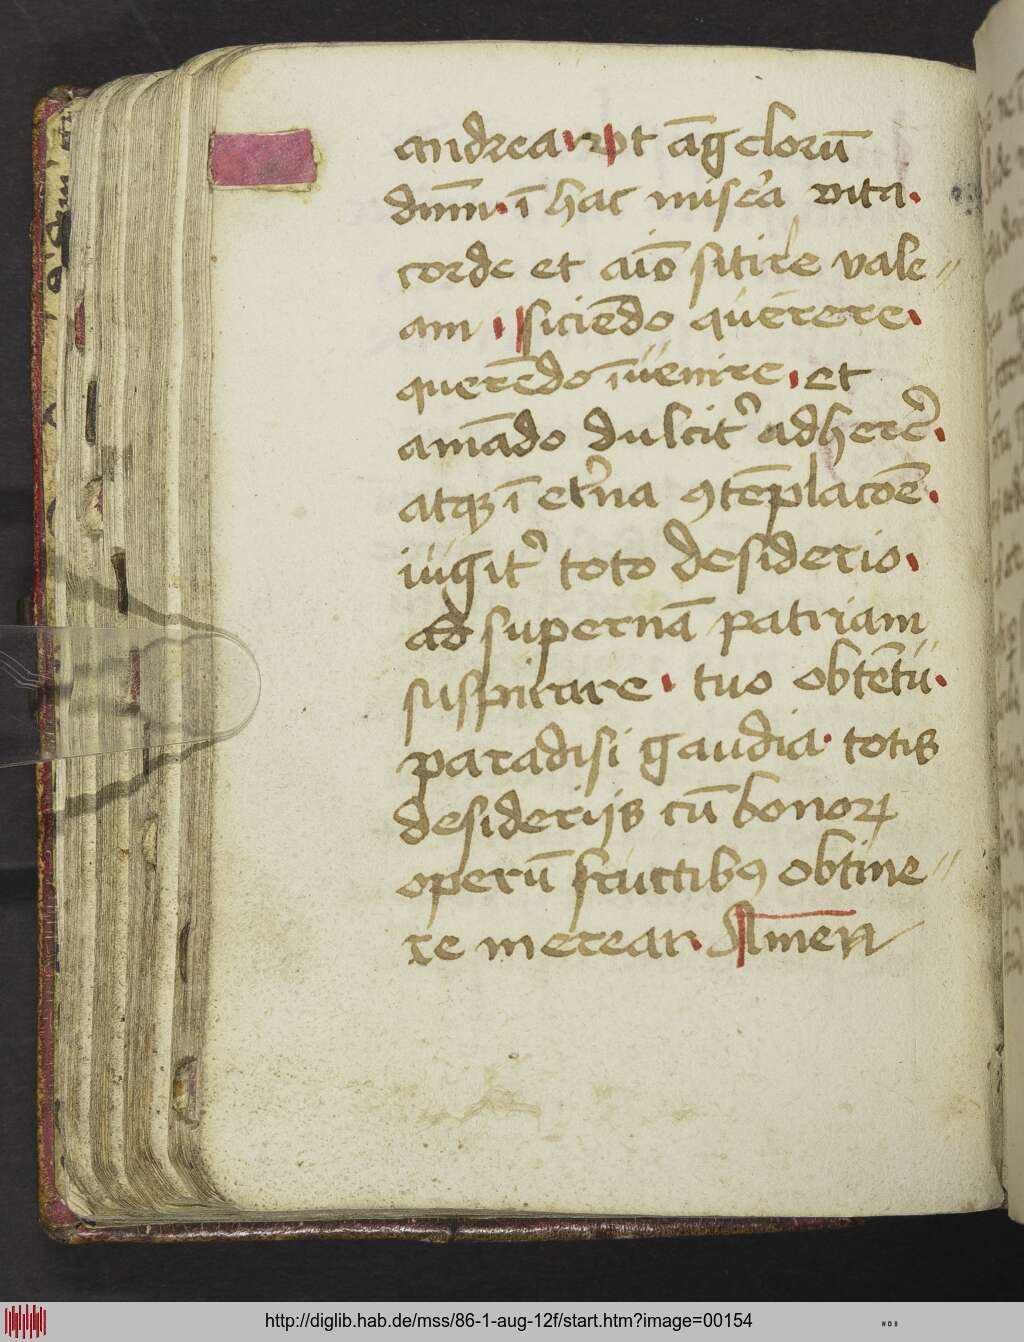 andrea. vt āgelorū
dn̄m. ī hac misẽa vita.
corde et aīo sitire vale〃
am. siciēdo querere.
querēdo īuenire. et
amādo dulcit᷑ adherẽ.
atqꝫ ī et᷑na ꝯtēplacōē.
iugit᷑ toto desiderio.
ad supernā patriam
suspirare. tuo obtētu.
paradisi gaudia. totis
desiderijs cū bonoꝝ
operū fructibꝰ obtine〃
re merear. Amen
http://diglib.hab.de/mss/86-1-aug-12f/start.htm?image=00154